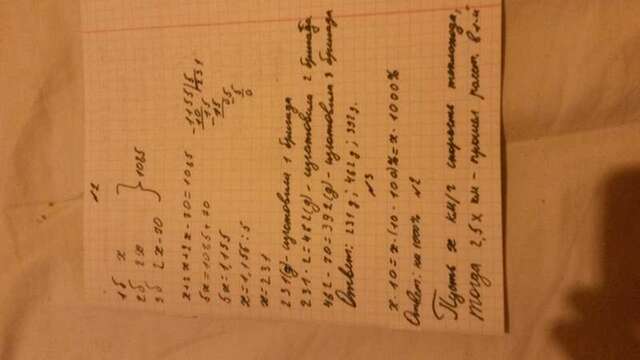 №2
1б x
2б 2x
3б 2x-70
} 1085
x+2x+2x-70=1085
5x=1085+70
5x=1,155
x=1,155:5
x=231
1155|5
10 231
15
15
05
5
0
231(д)-изготовила 1 бригада
231·2=462(д)-изготовила 2 бригада
462-70=392(д)-изготовила 3 бригада
Ответ: 231д; 462д; 392д.
№3
x·10=x·(10·100)%=x·1000%
Ответ: на 1000% №2
Пусть x км/г скорость теплохода,
тогда 2,5x км-прошел расст. в 1-й